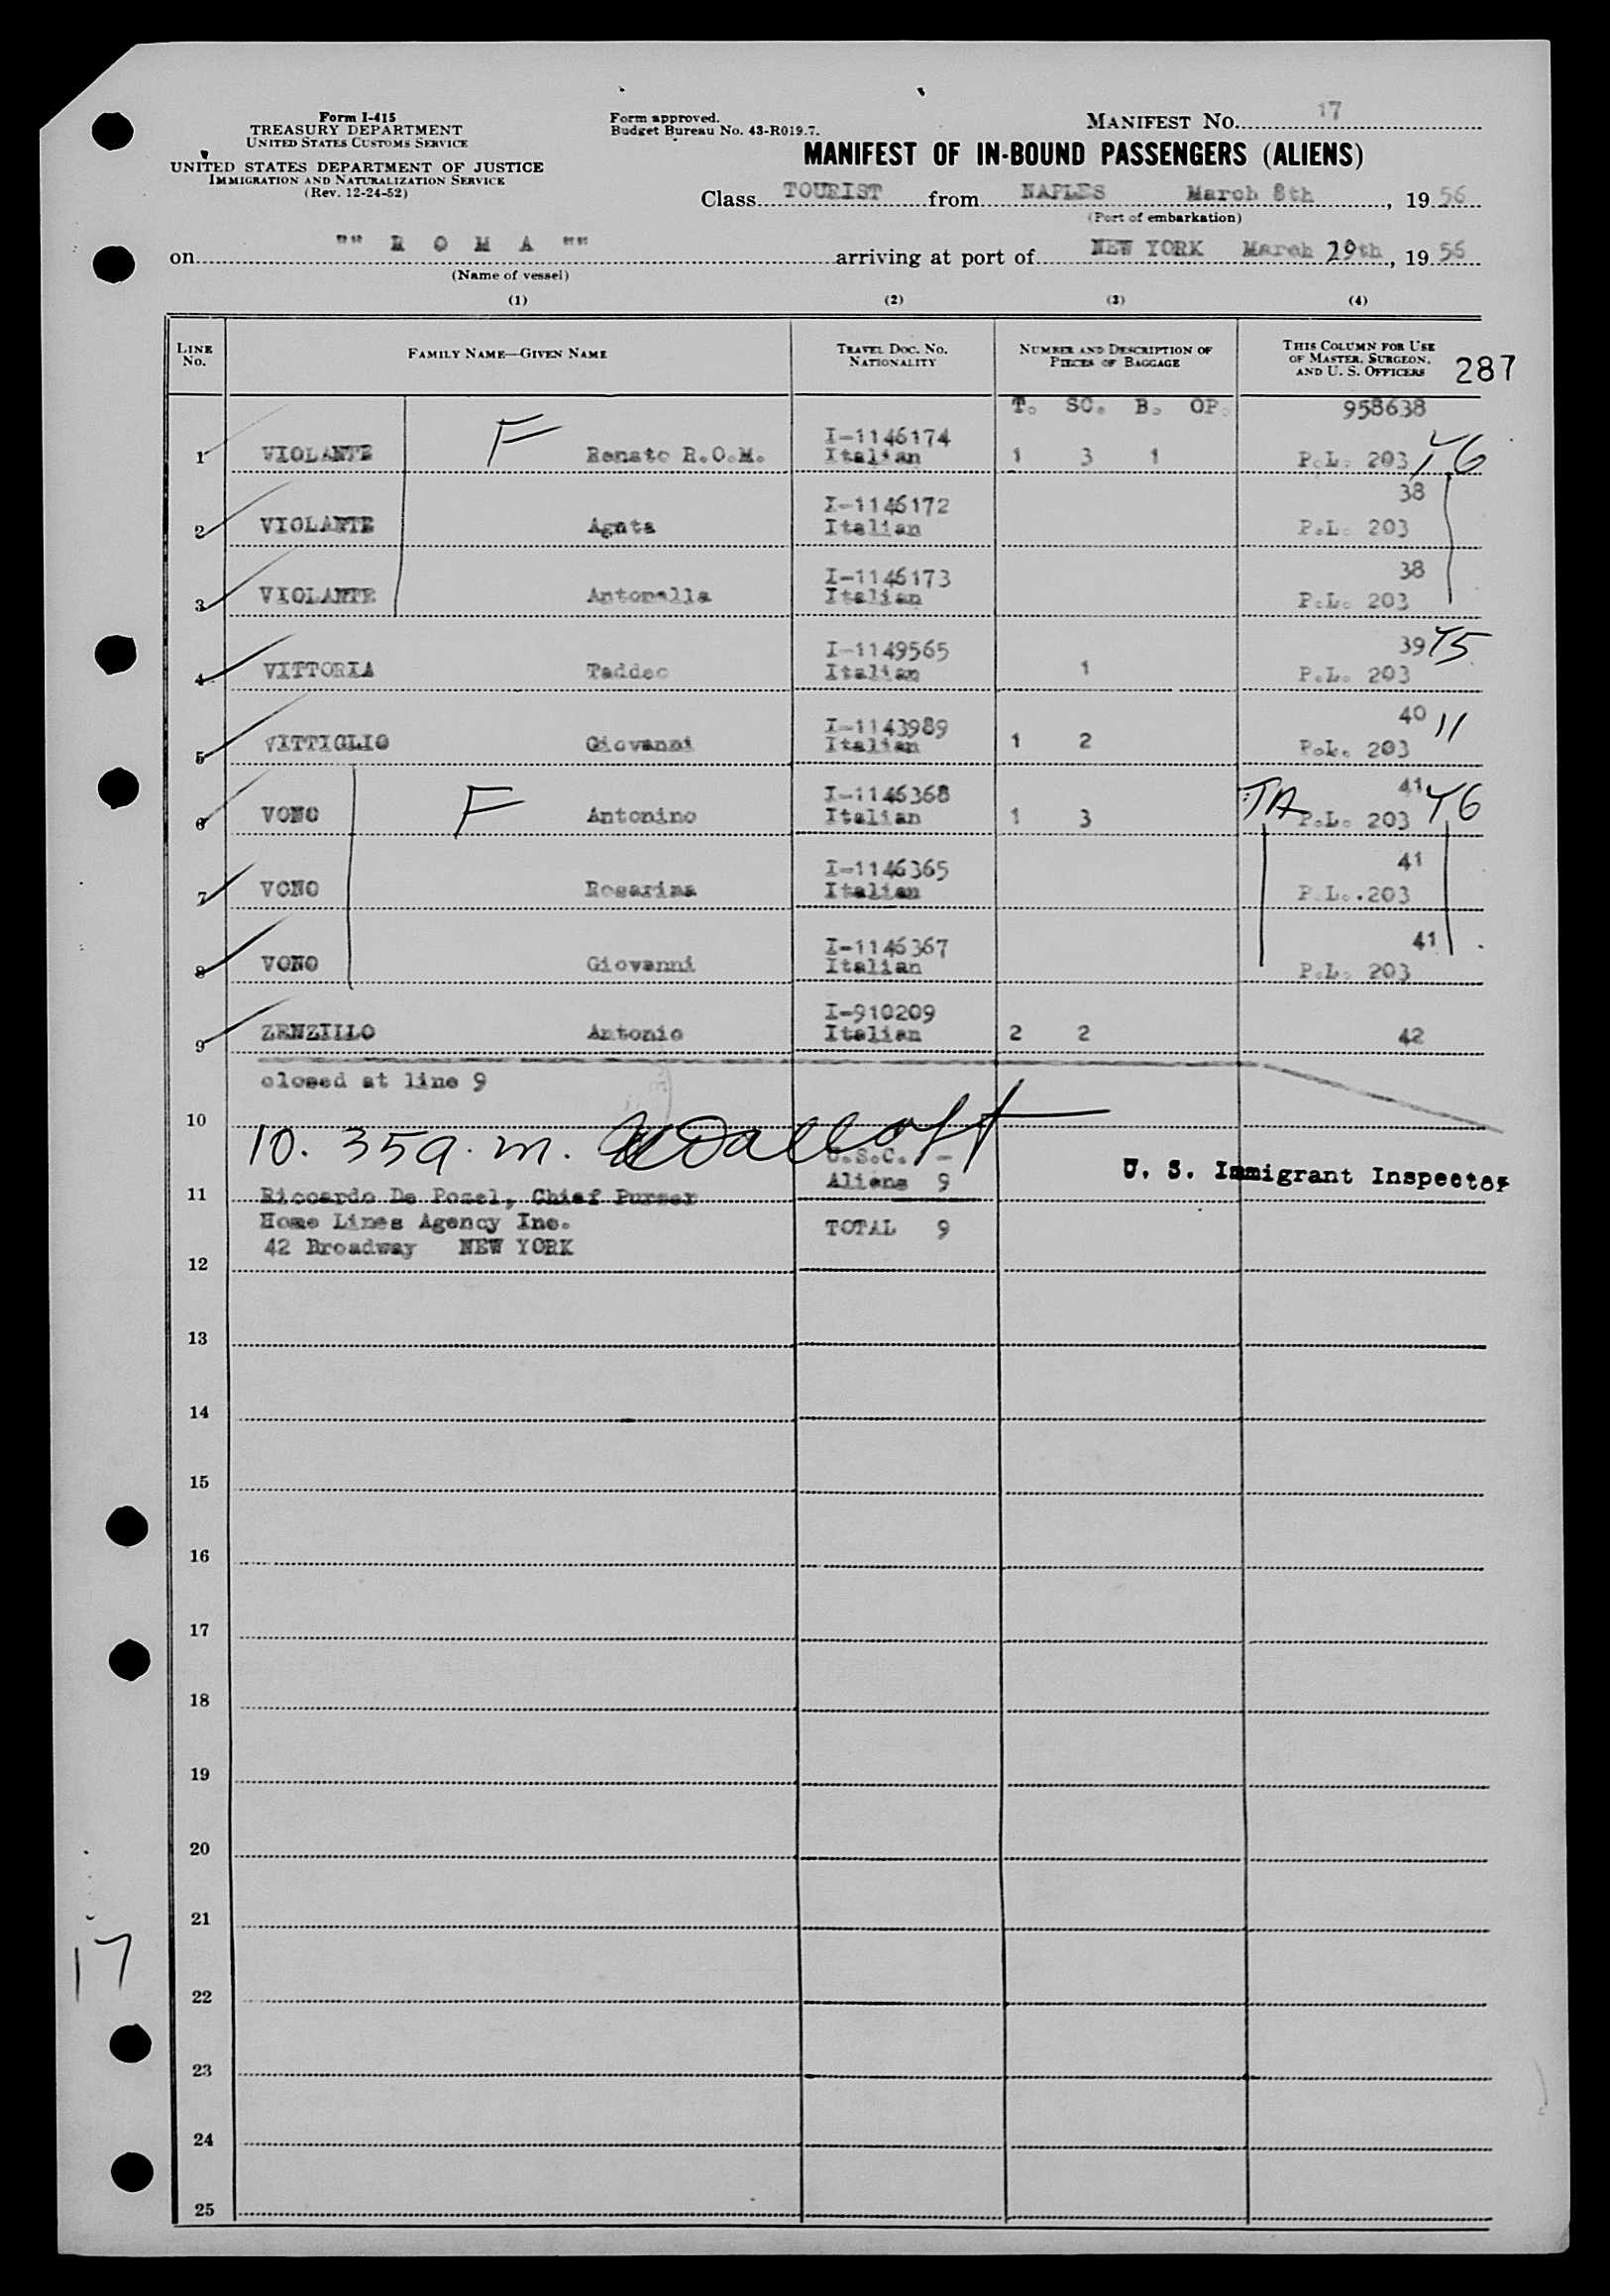 Form I-415
TREASURY DEPARTMENT
UNITED STATES CUSTOMS SERVICE
UNITED STATES DEPARTMENT OF JUSTICE
IMMIGRATION AND NATURALIZATION SERVICE
(Rev. 12-24-52)
Form approved.
Budget Bureau No. 43-R019.7.
MANIFEST NO. 17
MANIFEST OF IN-BOUND PASSENGERS (ALIENS)
Class TOURIST from NAPLES March 8th, 1956
(Port of embarkation)
on "" R O M A "" arriving at port of NEW YORK March 29th, 1956
(Name of vessel)
(1) (2) (3) (4)
LINE NO. FAMILY NAME—GIVEN NAME TRAVEL DOC. NO. NATIONALITY NUMBER AND DESCRIPTION OF PIECES OF BAGGAGE THIS COLUMN FOR USE OF MASTER, SURGEON, AND U. S. OFFICERS 287
T. SC. B. OP. 958638
I-1146174
1 VIOLANTE F Renato R.O.M. Italian 1 3 1 P.L. 203 Y6
I-1146172 38
2 VIOLANTE Agata Italian P.L. 203
I-1146173 38
3 VIOLANTE Antonella Italian P.L. 203
I-1149565 39 Y5
4 VITTORIA Taddeo Italian 1 P.L. 203
I-1143989 40 11
5 VITTIGLIO Giovanni Italian 1 2 P.L. 203
I-1146368 41
6 VONO F Antonino Italian 1 3 TA P.L. 203 Y6
I-1146365 41
7 VONO Rosarina Italian P.L. 203
I-1146367 41
8 VONO Giovanni Italian P.L. 203
I-910209
9 ZENZILLO Antonio Italian 2 2 42
closed at line 9
10
10. 35 a. m.
U.S.C. -
Aliens 9
U. S. Immigrant Inspector
11 Riccardo De Pozel, Chief Purser
Home Lines Agency Inc.
TOTAL 9
42 Broadway NEW YORK
12
13
14
15
16
17
18
19
20
21
17
22
23
24
25